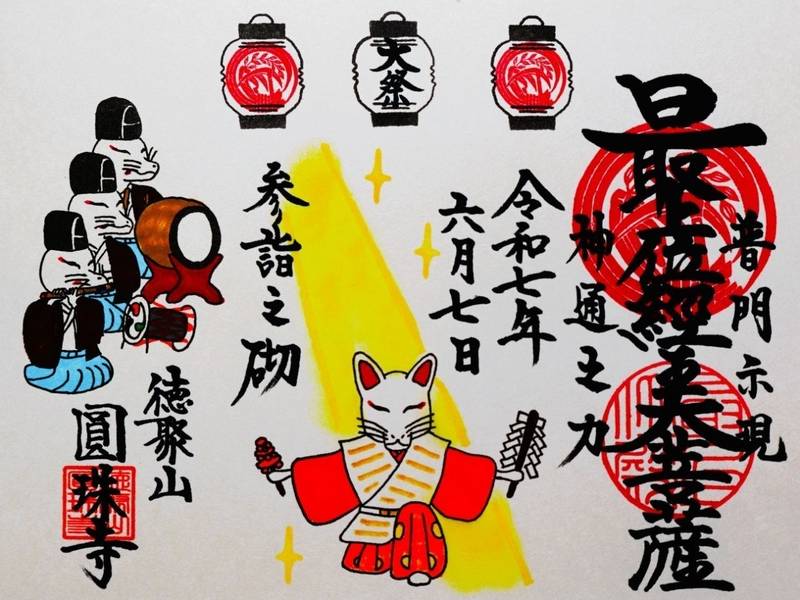 大祭
普明示現
最上位經王大菩薩
神通之力
令和七年
六月七日
参詣之砌
徳聚山
圓珠寺